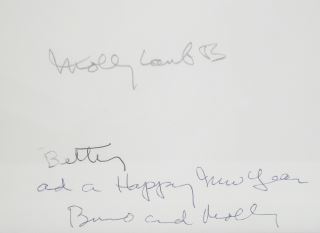 Molly Lamb B
Betty
ad a Happy New Year
Bruno and Molly